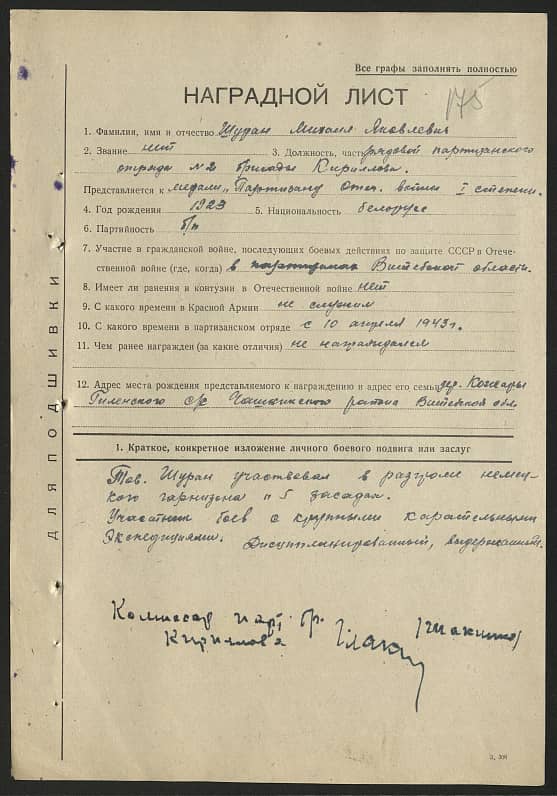 Все графы заполнять полностью
НАГРАДНОЙ ЛИСТ
175
1. Фамилия, имя и отчество Шуран Михаил Яковлевич
2. Звание нет 3. Должность, часть рядовой партизанского
отряда №2 бригады Кириллова.
Представляется к медали „Партизану Отеч. войны I степени.
4. Год рождения 1923 5. Национальность белорус
6. Партийность б/п
7. Участие в гражданской войне, последующих боевых действиях по защите СССР в Отече-
ственной войне (где, когда) в Витебской области.
8. Имеет ли ранения и контузии в Отечественной войне нет
9. С какого времени в Красной Армии не служил
10. С какого времени в партизанском отряде с 10 апреля 1943 г.
11. Чем ранее награжден (за какие отличия) не награждался
12. Адрес места рождения представляемого к награждению и адрес его семьи дер.
с/с Чашникского района Витебской обл
1. Краткое, конкретное изложение личного боевого подвига или заслуг
Тов. Шуран участвовал в разгроме немец-
кого гарнизона и 5 засадах.
Участник боев с крупными карательными
экспедициями. Дисциплинированный, выдержанный.
Комиссар парт. бр.
Кириллова
ДЛЯ ПОДШИВКИ